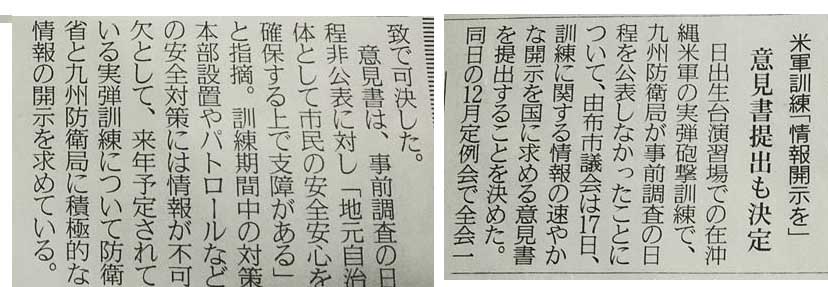 米軍訓練「情報開示を」
意見書提出も決定
日出生台演習場での在沖
縄米軍の実弾砲撃訓練で、
九州防衛局が事前調査の日
程を公表しなかったことに
ついて、由布市議会は17日、
訓練に関する情報の速やか
な開示を国に求める意見書
を提出することを決めた。
同日の12月定例会で全会一
致で可決した。
意見書は、事前調査の日
程非公表に対し「地元自治
体として市民の安全安心を
確保する上で支障がある」
と指摘。訓練期間中の対策
本部設置やパトロールなど
の安全対策には情報が不可
欠として、来年予定されて
いる実弾訓練について防衛
省と九州防衛局に積極的な
情報の開示を求めている。